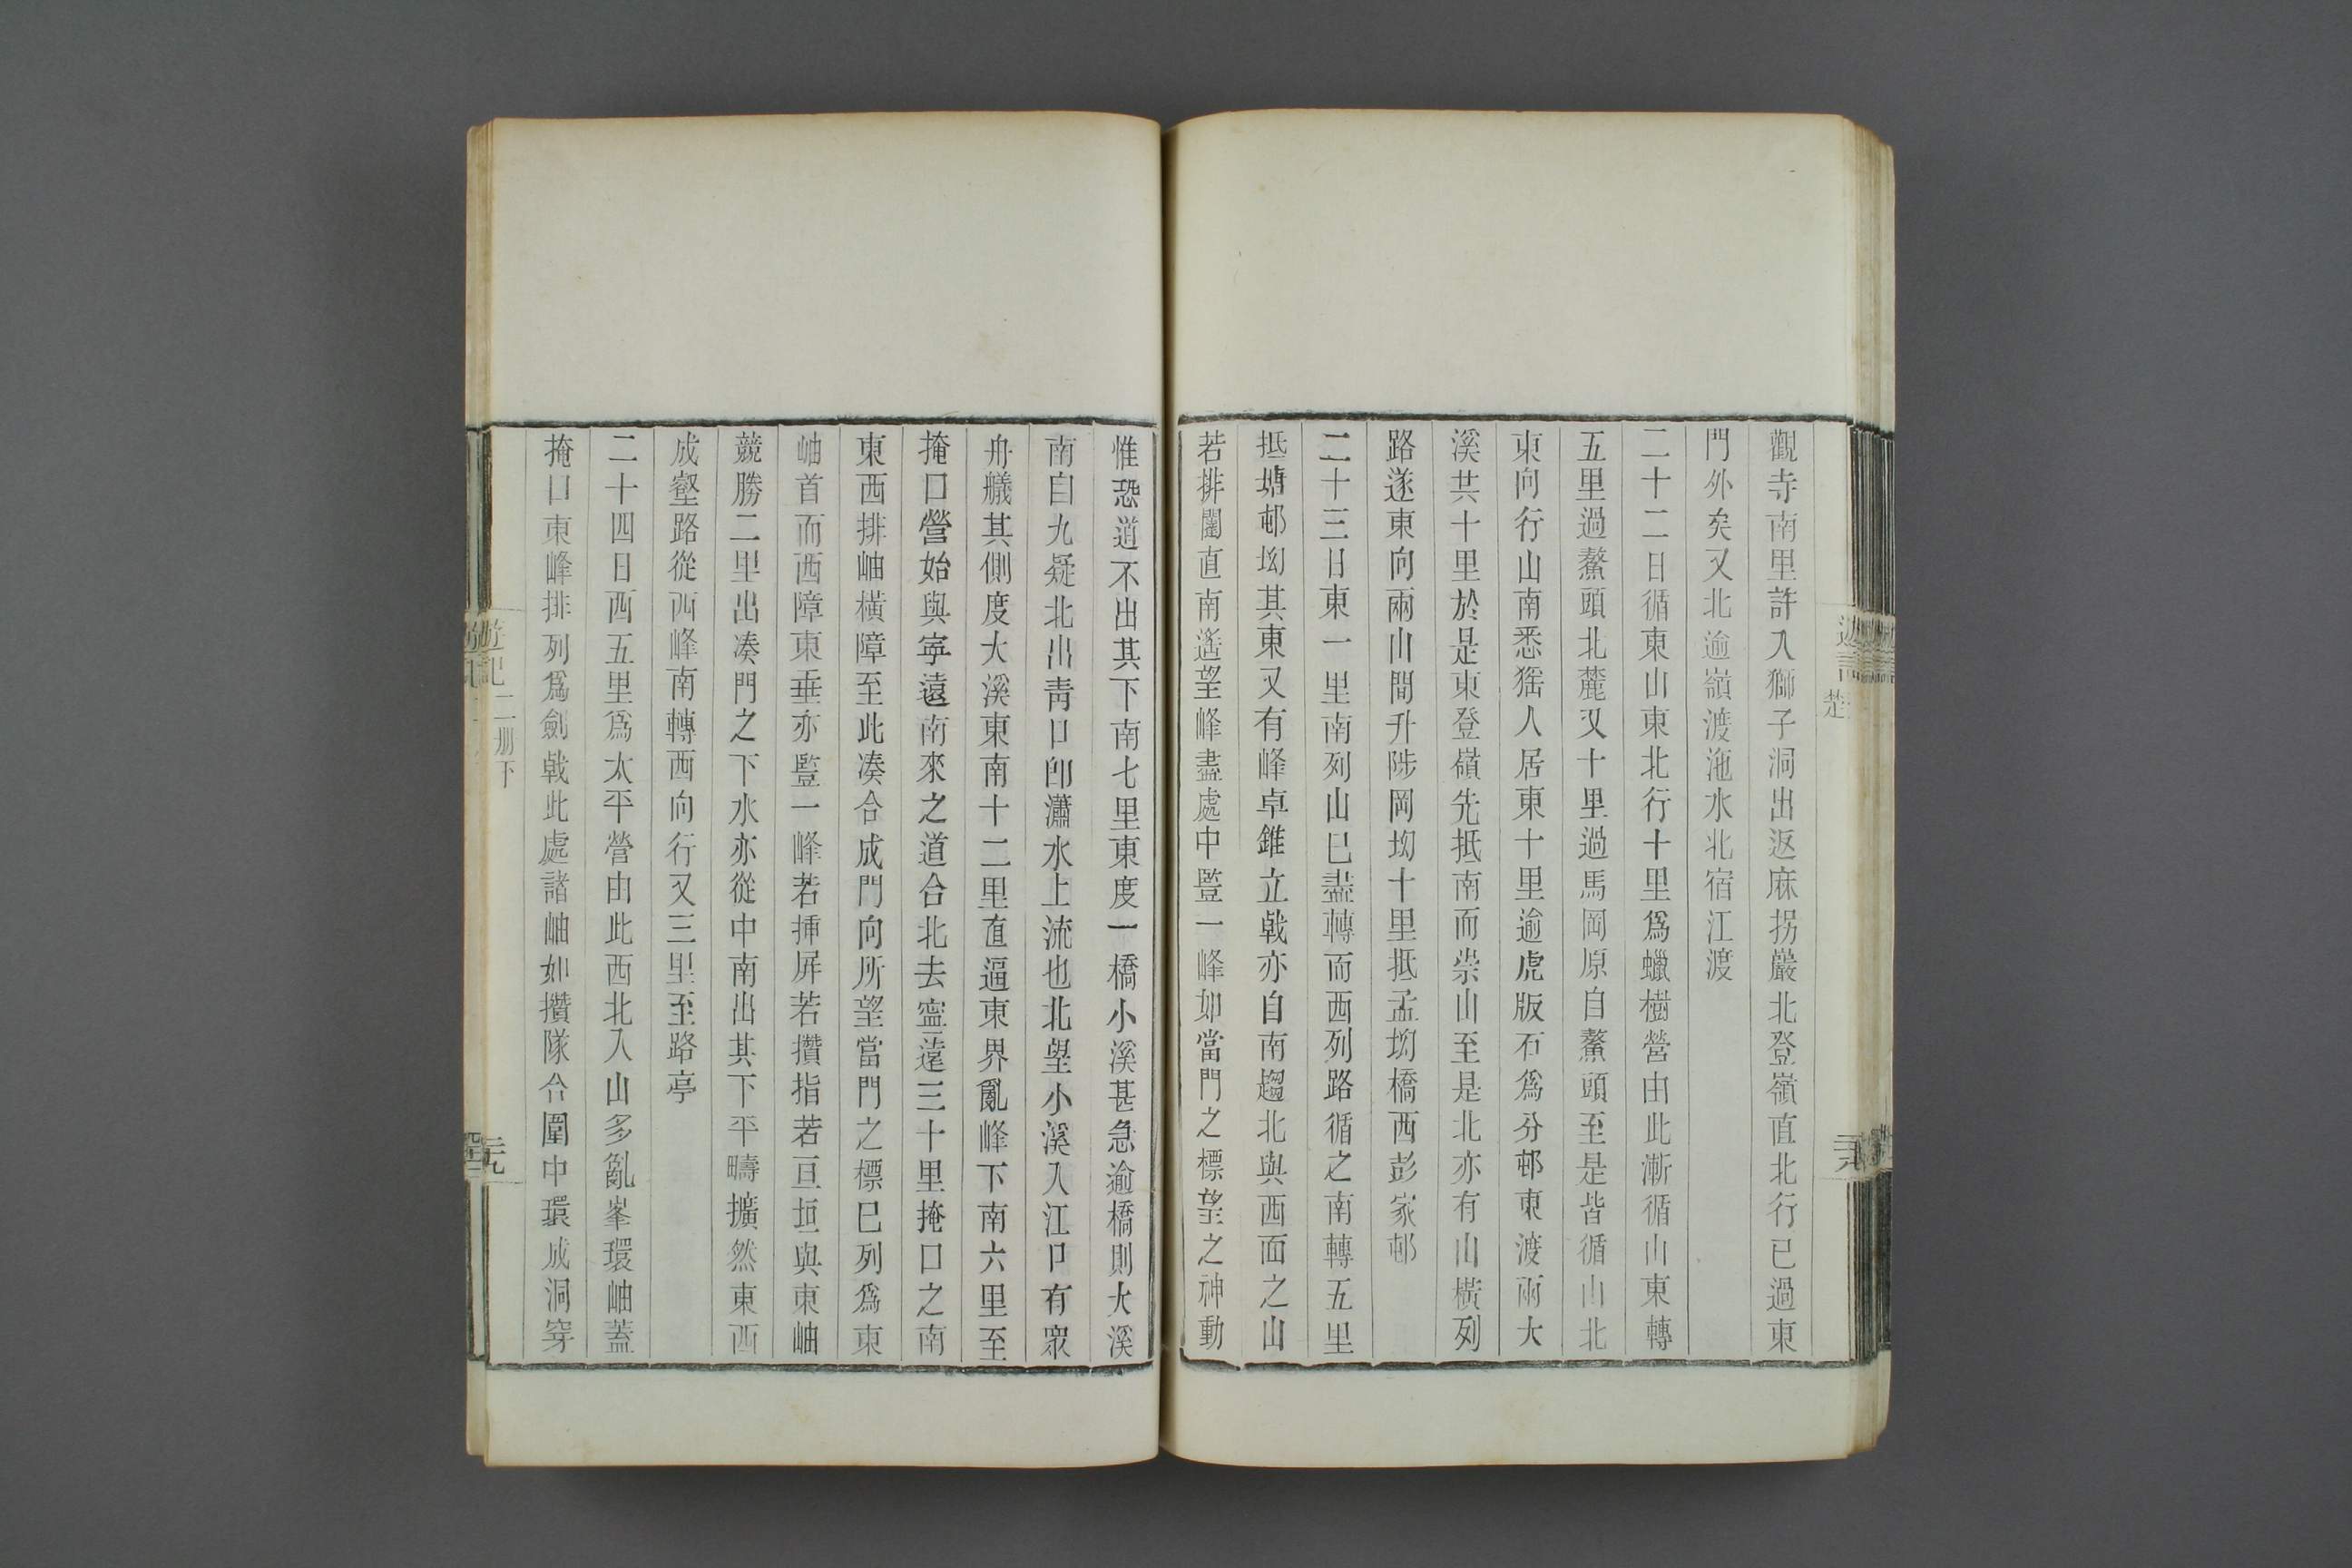 觀寺南里許入獅子洞出返麻拐巖北登嶺直北行已過東
門外矣又北逾嶺渡沲水北宿江渡
二十二日循東山東北行十里爲蠟樹營由此漸循山東轉
五里過鰲頭北麓又十里過馬岡原自鰲頭至是皆循山北
東向行山南悉猺人居東十里逾虎版石爲分邨東渡兩大
溪共十里於是東登嶺先抵南而崇山至是北亦有山橫列
路遂東向兩山間升陟岡坳十里抵孟坳橋西彭家邨
二十三日東一里南列山已盡轉而西列路循之南轉五里
抵塘邨坳其東又有峰卓錐立戟亦自南趨北與西面之山
若排闥直南遙望峰盡處中豎一峰如當門之標望之神動
惟恐道不出其下南七里東度一橋小溪甚急逾橋則大溪
南自九疑北出青口卽瀟水上流也北望小溪入江口有眾
舟艤其側度大溪東南十二里直逼東界亂峰下南六里至
掩口營始與寧遠南來之道合北去寧遠三十里掩口之南
東西排岫橫障至此湊合成門向所望當門之標已列爲東
岫首而西障東垂亦豎一峰若揷屏若攢指若亘垣與東岫
競勝二里出湊門之下水亦從中南出其下平疇擴然東西
成壑路從西峰南轉西向行又三里至路亭
二十四日西五里爲太平營由此西北入山多亂峯環岫蓋
掩口東峰排列爲劍戟此處諸岫如攢隊合圍中環成洞穿
遊記
二册下